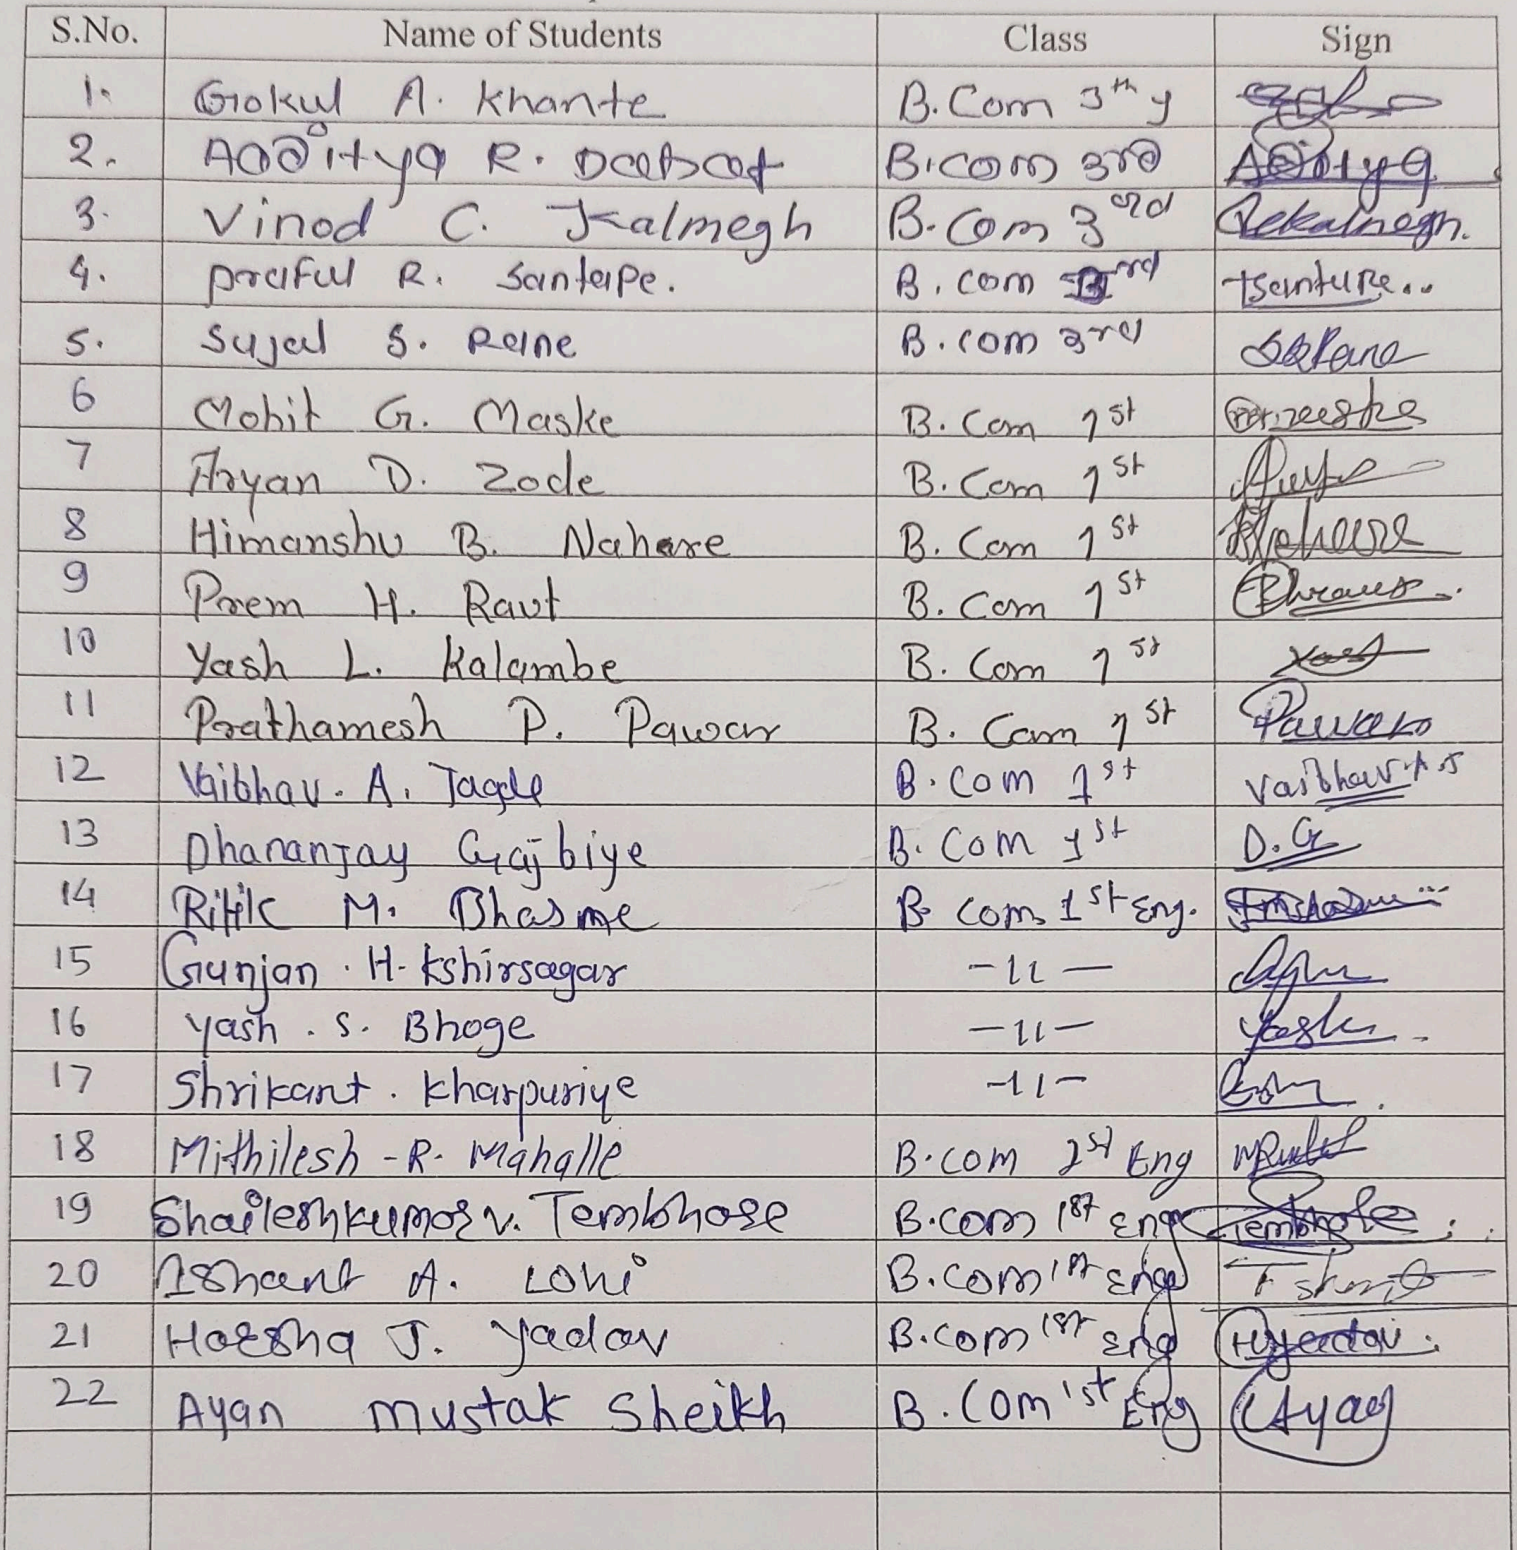 S.No. Name of Students Class Sign
1. Gokul A. Khante B.Com 3th y
2. Aaditya R. B.com 3rd Aditya
3. Vinod C. Kalmegh B.Com 3rd
4. praful R. Santape. B.com 3rd
5. Sujal S. Rane B.com 3rd SSRane
6 Mohit G. Maske B.Com 1st
7 Aryan D. Zode B.Com 1st
8 Himanshu B. Nahare B.Com 1st
9 Prem H. Raut B.Com 1st
10 Yash L. Kalambe B.Com 1st
11 Prathamesh P. Pawar B.Com 1st Pawar
12 Vaibhav. A. Tagde B.Com 1st Vaibhav.A.T
13 Dhananjay Gajbiye B.Com 1st D.G
14 Ritik M. Bhasme B com 1st Eng.
15 Gunjan . H. Kshirsagar -11-
16 Yash . S. Bhoge -11- Yash
17 Shrikant . Kharpuriye -11-
18 Mithilesh - R. Mahalle B.com 1st Eng
19 Shaileshkumar v. Tembhare B.com 1st Eng Tembhare
20 Ishant A. Lohi B.com 1st Eng Ishant
21 Harsha J. Yadav B.com 1st Eng HYadav
22 Ayan Mustak Sheikh B.Com 1st Eng Ayan